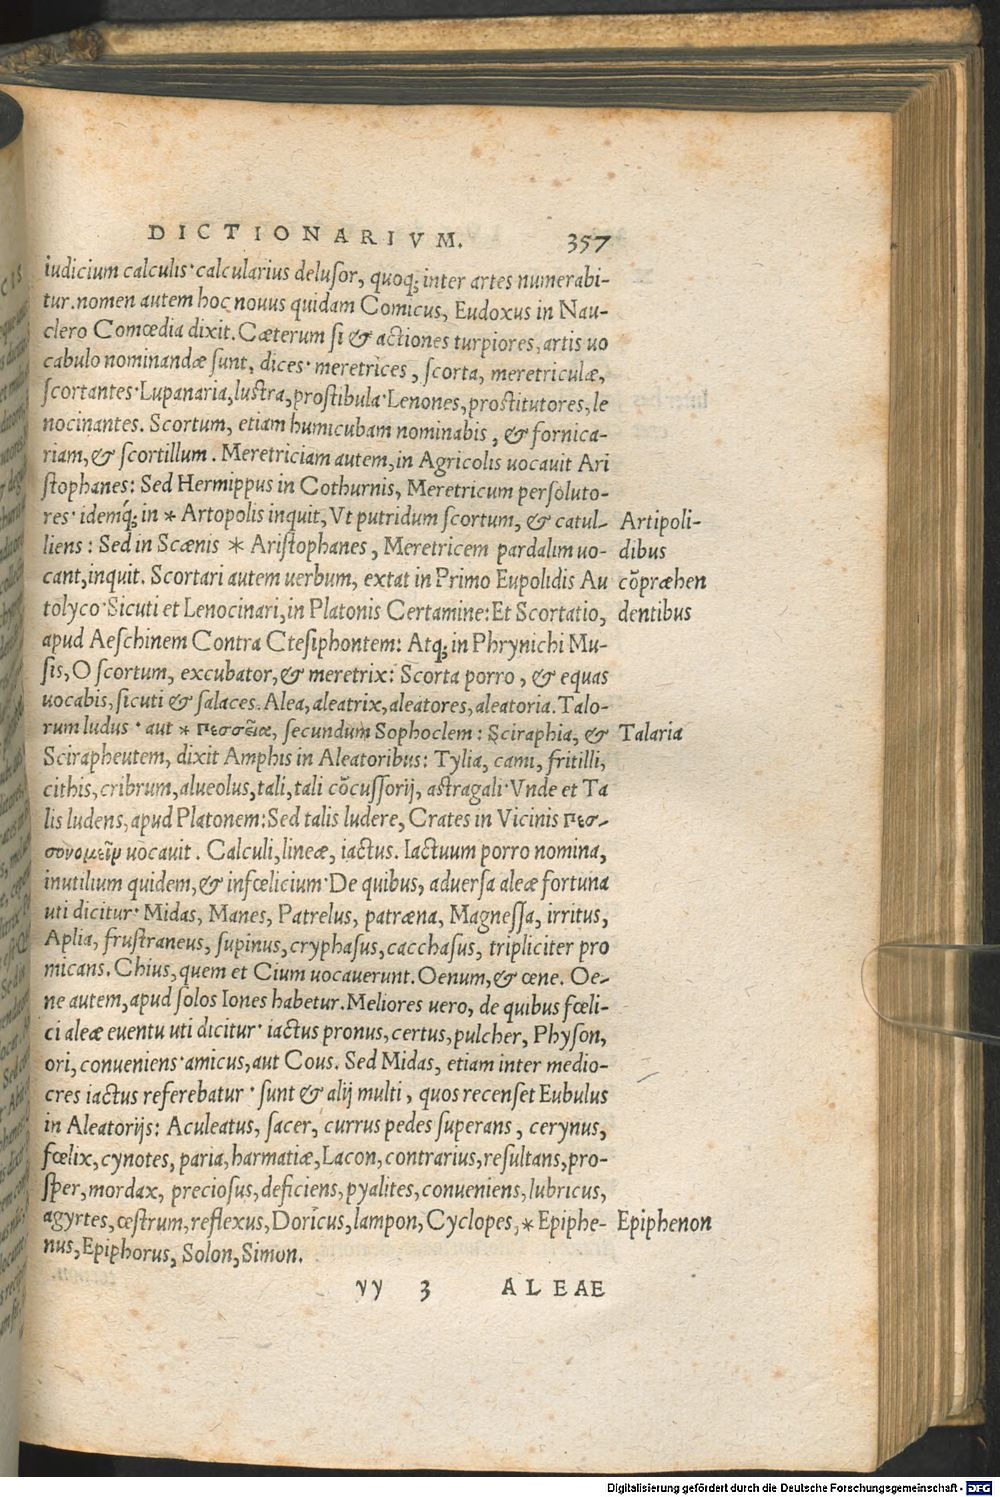 DICTIONARIVM. 357
iudicium calculis·calcularius delusor, quoq; inter artes numerabi-
tur. nomen autem hoc nouus quidam Comicus, Eudoxus in Nau-
clero Comœdia dixit. Cæterum si & actiones turpiores, artis uo
cabulo nominandæ sunt, dices· meretrices, scorta, meretriculæ,
scortantes·Lupanaria, lustra, prostibula·Lenones, prostitutores, le
nocinantes. Scortum, etiam humicubam nominabis, & fornica-
riam, & scortillum. Meretriciam autem, in Agricolis uocauit Ari
stophanes: Sed Hermippus in Cothurnis, Meretricum persoluto-
res· idemq́; in * Artopolis inquit, Vt putridum scortum, & catul- Artipoli-
liens: Sed in Scænis * Aristophanes, Meretricem pardalim uo- dibus
cant, inquit. Scortari autem uerbum, extat in Primo Eupolidis Au cõpræhen
tolyco·Sicuti et Lenocinari, in Platonis Certamine: Et Scortatio, dentibus
apud Aeschinem Contra Ctesiphontem: Atq; in Phrynichi Mu-
sis, O scortum, excubator, & meretrix: Scorta porro, & equas
uocabis, sicuti & salaces. Alea, aleatrix, aleatores, aleatoria. Talo-
rum ludus· aut * πεσσεία, secundum Sophoclem: Sciraphia, & Talaria
Scirapheutem, dixit Amphis in Aleatoribus: Tylia, cami, fritilli,
cithis, cribrum, alueolus, tali, tali cõcussorij, astragali·Vnde et Ta
lis ludens, apud Platonem: Sed talis ludere, Crates in Vicinis πεσ-
σονομεῖν uocauit. Calculi, lineæ, iactus. Iactuum porro nomina,
inutilium quidem, & infœlicium·De quibus, aduersa aleæ fortuna
uti dicitur· Midas, Manes, Patrelus, patræna, Magnessa, irritus,
Aplia, frustraneus, supinus, cryphasus, cacchasus, tripliciter pro
micans. Chius, quem et Cium uocauerunt. Oenum, & œne. Oe-
ne autem, apud solos Iones habetur. Meliores uero, de quibus fœli-
ci aleæ euentu uti dicitur· iactus pronus, certus, pulcher, Physon,
ori, conueniens·amicus, aut Cous. Sed Midas, etiam inter medio-
cres iactus referebatur· sunt & alij multi, quos recenset Eubulus
in Aleatorijs: Aculeatus, sacer, currus pedes superans, cerynus,
fœlix, cynotes, paria, harmatiæ, Lacon, contrarius, resultans, pro-
sper, mordax, preciosus, deficiens, pyalites, conueniens, lubricus,
agyrtes, œstrum, reflexus, Doricus, lampon, Cyclopes, * Epiphe- Epiphenon
nus, Epiphorus, Solon, Simon.
yy 3 ALEAE
Digitalisierung gefördert durch die Deutsche Forschungsgemeinschaft - DFG